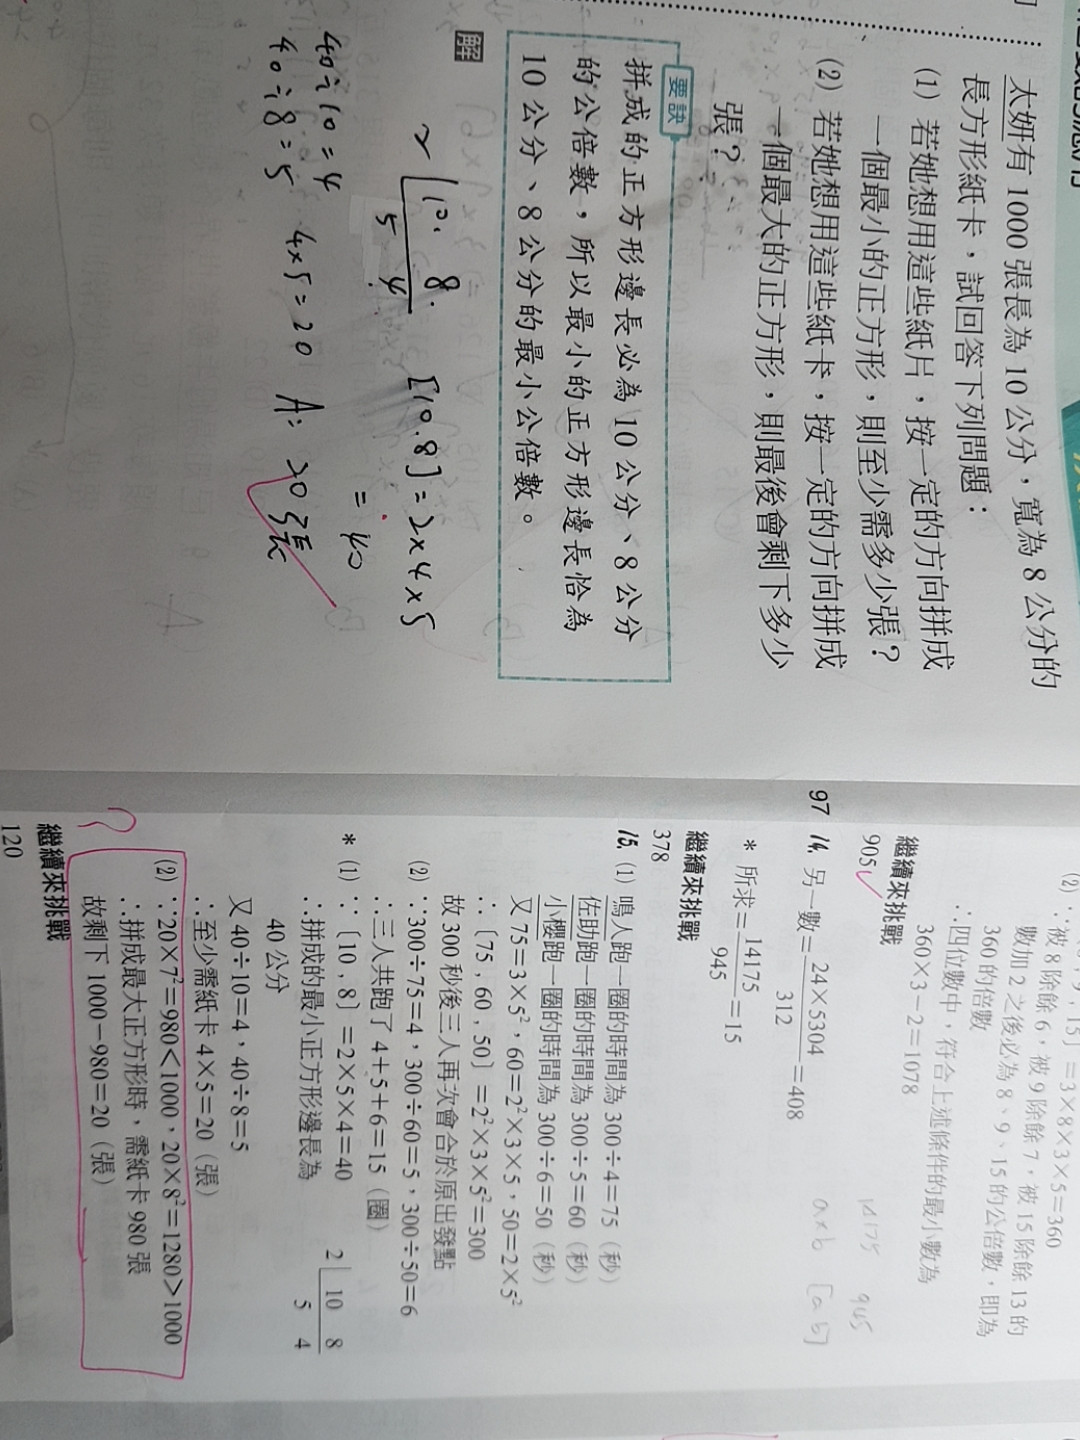 太妍有 1000 張長為 10 公分，寬為 8 公分的
長方形紙卡，試回答下列問題：
(1) 若她想用這些紙片，按一定的方向拼成
一個最小的正方形，則至少需多少張？
(2) 若她想用這些紙卡，按一定的方向拼成
一個最大的正方形，則最後會剩下多少
張？
要訣
拼成的正方形邊長必為 10 公分、8 公分
的公倍數，所以最小的正方形邊長恰為
10 公分、8 公分的最小公倍數。
解
2 10. 8.
5 4
[10.8]=2×4×5
=40
40÷10=4
40÷8=5
4×5=20 A: 20張
13的
數加 2 之後必為 8、9、15 的公倍數，即為
360 的倍數
∴四位數中，符合上述條件的最小數為
360×3−2=1078
繼續來挑戰
905
97 14. 另一數=24×5304/312=408
* 所求=14175/945=15
14175 945
a×b [a b]
繼續來挑戰
378
15. (1) 鳴人跑一圈的時間為 300÷4=75（秒）
佐助跑一圈的時間為 300÷5=60（秒）
小櫻跑一圈的時間為 300÷6=50（秒）
又 75=3×5²，60=2²×3×5，50=2×5²
∴〔75，60，50〕=2²×3×5²=300
故 300 秒後三人再次會合於原出發點
(2) ∵300÷75=4，300÷60=5，300÷50=6
∴三人共跑了 4+5+6=15（圈）
* (1) ∵〔10，8〕=2×5×4=40
∴拼成的最小正方形邊長為
40 公分
2 10 8
5 4
又 40÷10=4，40÷8=5
∴至少需紙卡 4×5=20（張）
(2) ∵20×7²=980<1000，20×8²=1280>1000
∴拼成最大正方形時，需紙卡 980 張
故剩下 1000−980=20（張）
?
繼續來挑戰
120